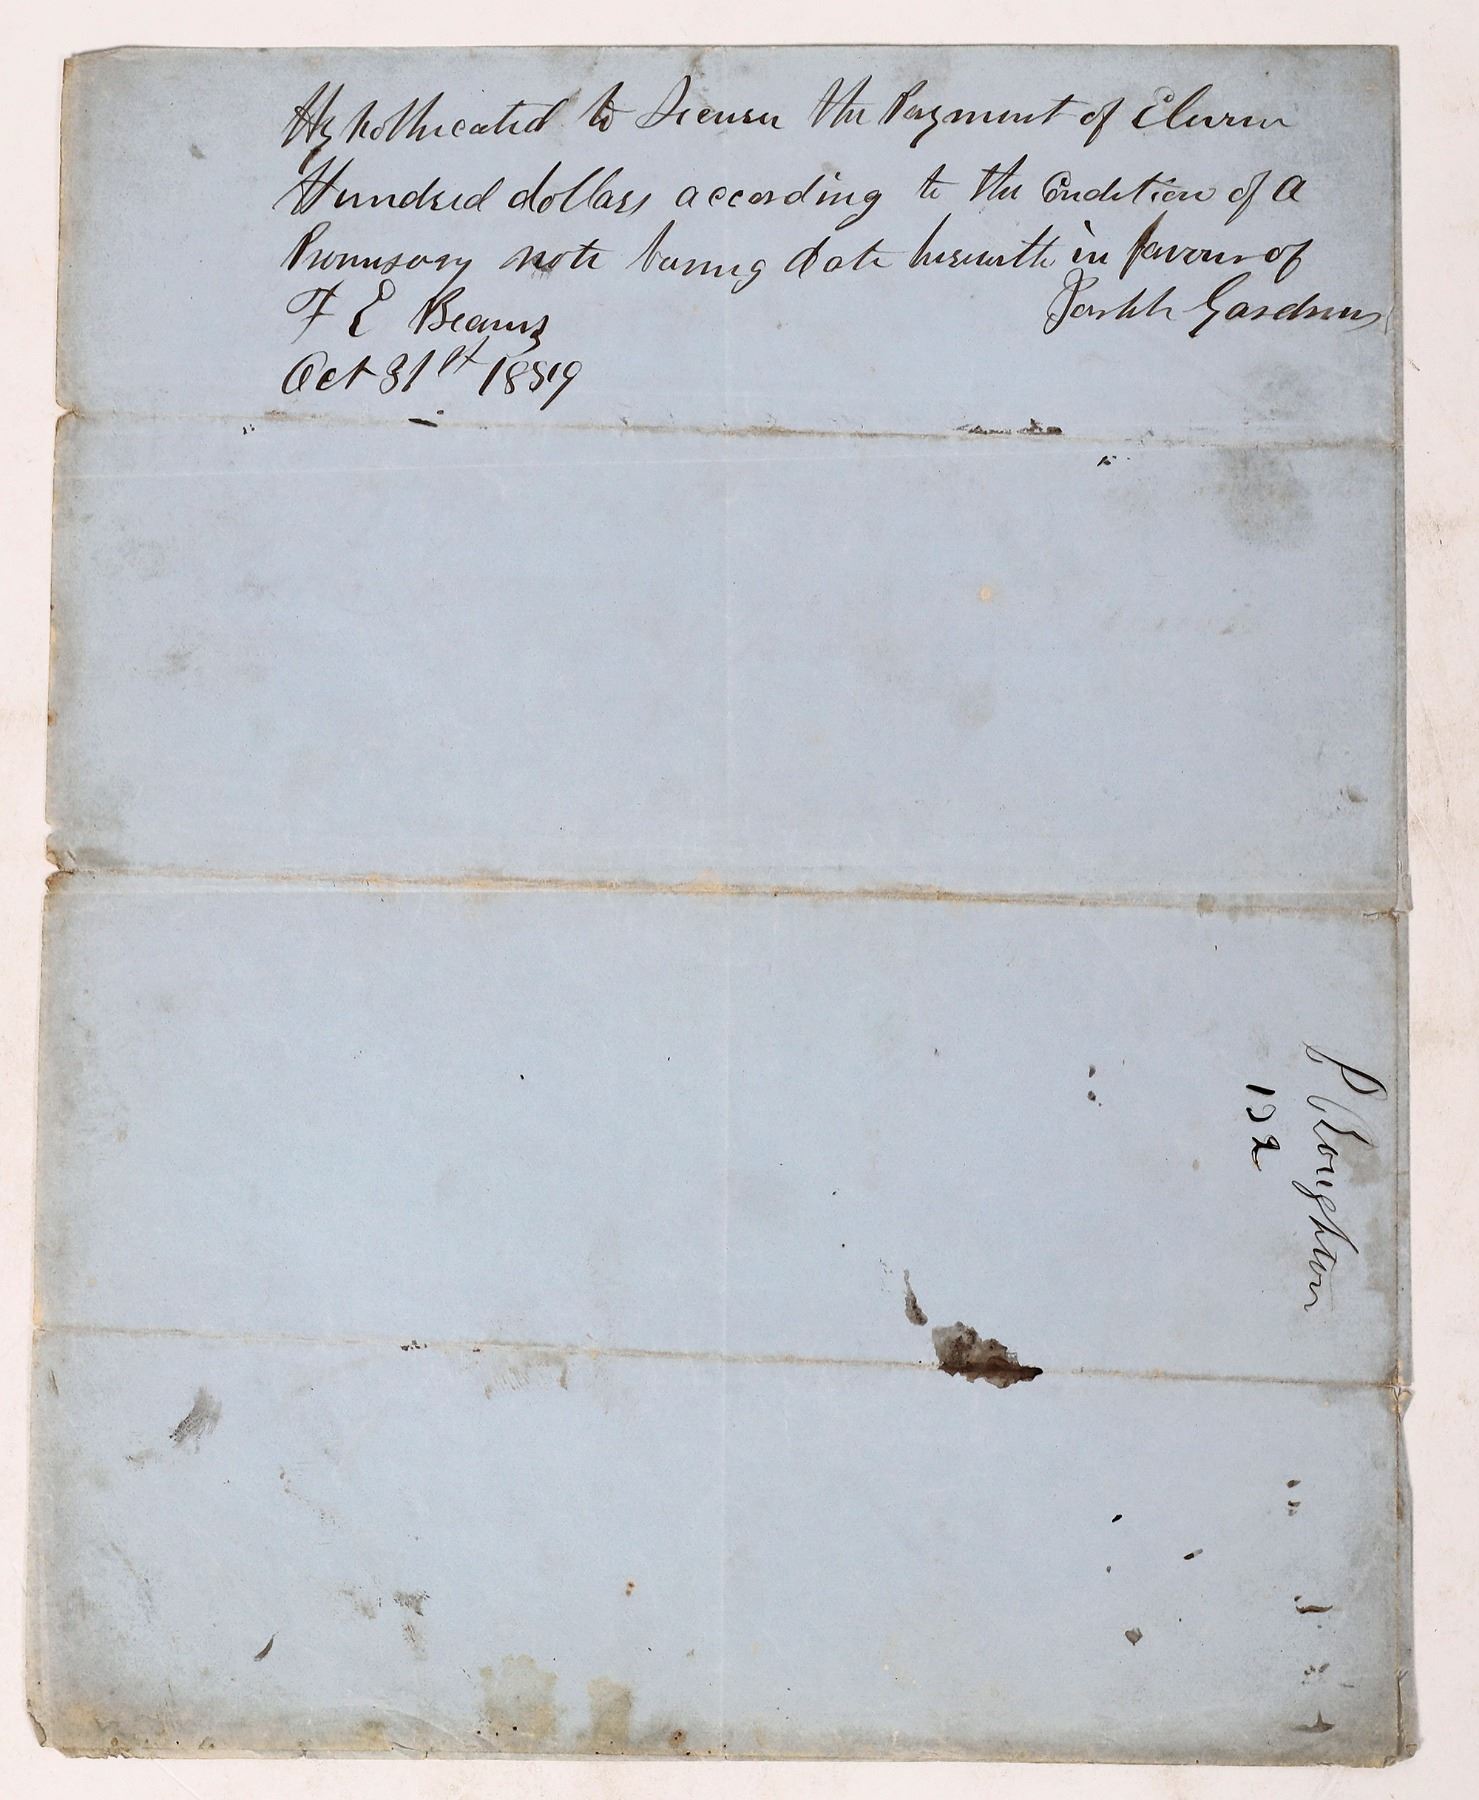 Hypothicated to Secure the Payment of Eleven
Hundred dollars according to the Condition of a
Promisory note bearing date herewith in favour of
F E Beans
Gardner
Oct 31st 1859
P Cloughton
122